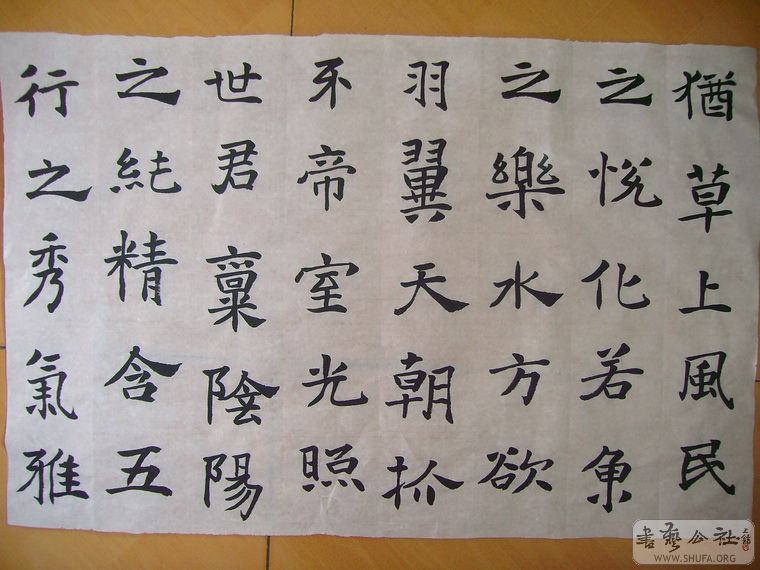 猶草上風民
之悅化若魚
之樂水方欲
羽翼天朝抓
牙帝室光照
世君稟陰陽
之純精含五
行之秀氣雅
書藝公社
WWW.SHUFA.ORG